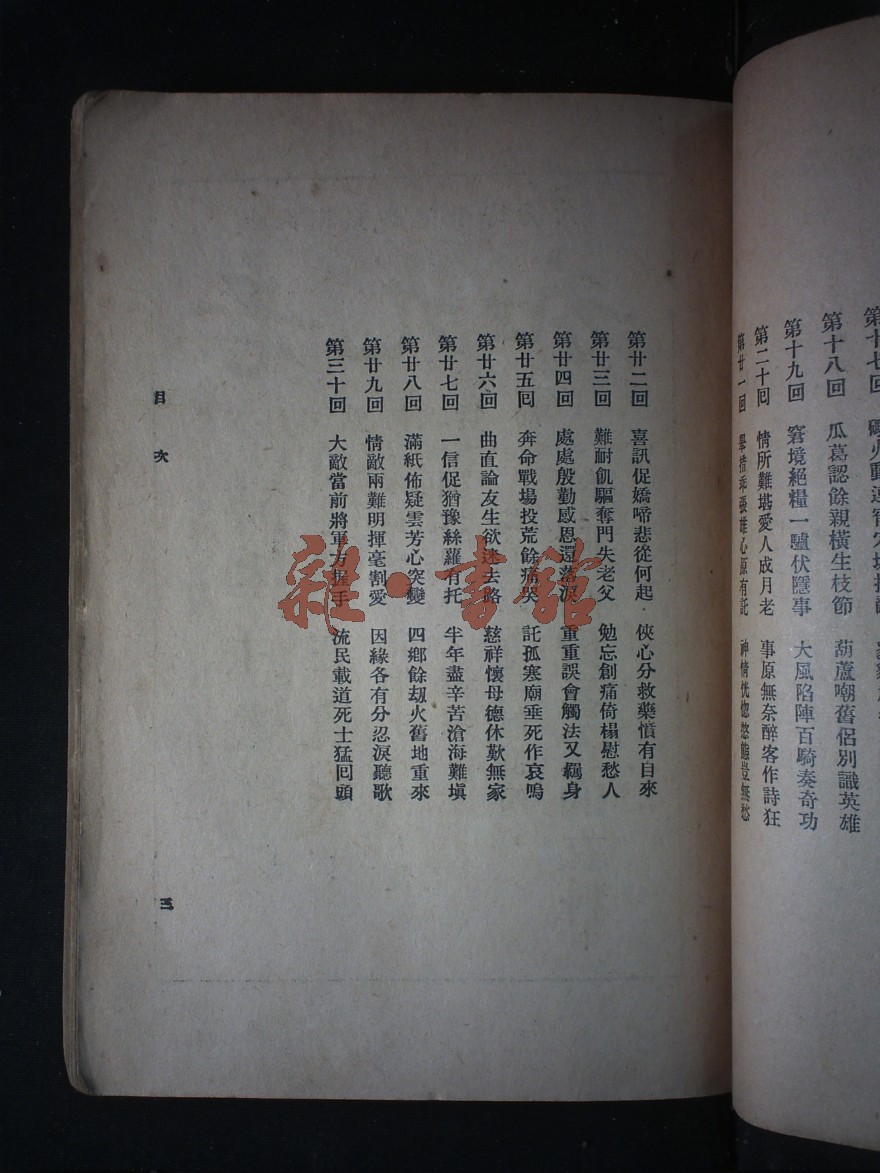 第十七回
第十八回　瓜葛認餘親橫生枝節　葫蘆嘲舊侶別識英雄
第十九回　窘境絕糧一驢伏隱事　大風陷陣百騎奏奇功
第二十回　情所難堪愛人成月老　事原無奈醉客作詩狂
第廿一回　舉措乖張雄心原有託　神情恍惚愁態豈無愁
第廿二回　喜訊促嬌啼悲從何起　俠心分救藥憤有自來
第廿三回　難耐飢驅奪門失老父　勉忘創痛倚榻慰愁人
第廿四回　處處殷勤感恩還落淚　重重誤會觸法又羈身
第廿五回　奔命戰場投荒餘痛哭　託孤寒廟垂死作哀鳴
第廿六回　曲直論友生欲迷去路　慈祥懷母德休歎無家
第廿七回　一信促猶豫絲蘿有托　半年盡辛苦滄海難塡
第廿八回　滿紙佈疑雲芳心突變　四鄉餘刼火舊地重來
第廿九回　情敵兩難明揮毫割愛　因緣各有分忍淚聽歌
第三十回　大敵當前將軍方握手　流民載道死士猛回頭
目次
三
雜·書館